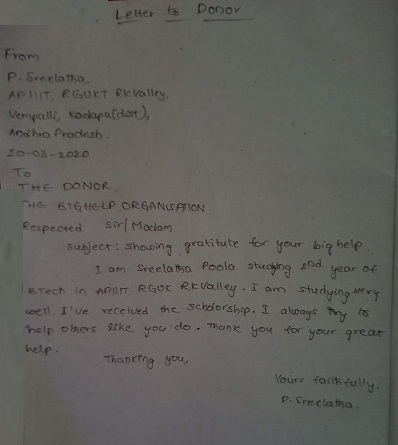 Letter to Donor
From
P. Sreelatha,
APIIIT, RGUKT RkValley,
Vempalli, Kadapa(dist),
Andhra Pradesh.
20-03-2020
To
THE DONOR,
THE BIGHELP ORGANISATION
Respected Sir/Madam
Subject: Showing gratitute for your big help.
I am Sreelatha Poola studying 2nd year of
BTech in APIIIT RGUK RkValley. I am studying very
well. I've received the scholorship. I always try to
help others like you do. Thank you for your great
help.
Thanking you,
Yours faithfully,
P. Sreelatha.